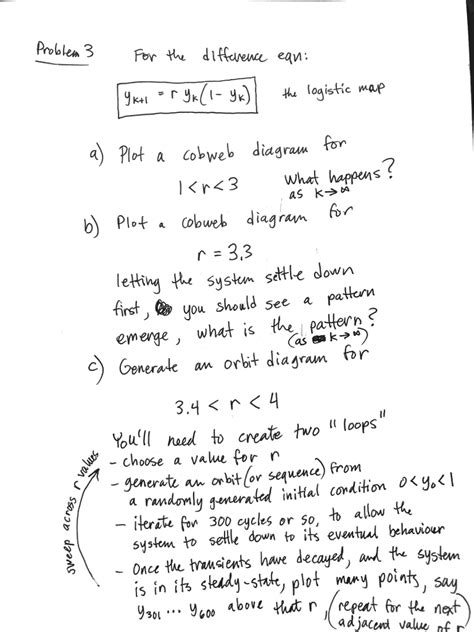 Problem 3
For the difference eqn:
y_{k+1} = r y_k (1 - y_k)
the logistic map
a) Plot a cobweb diagram for
1 < r < 3
What happens?
as k → ∞
b) Plot a cobweb diagram for
r = 3.3
letting the system settle down
first, you should see a pattern
emerge, what is the pattern?
(as k → ∞)
c) Generate an orbit diagram for
3.4 < r < 4
You'll need to create two "loops"
- choose a value for r
- generate an orbit (or sequence) from
a randomly generated initial condition 0 < y_0 < 1
- iterate for 300 cycles or so, to allow the
system to settle down to its eventual behaviour
- Once the transients have decayed, and the system
is in its steady-state, plot many points, say
y_{301} ... y_{600} above that r, (repeat for the next
adjacent value of r
sweep across r values